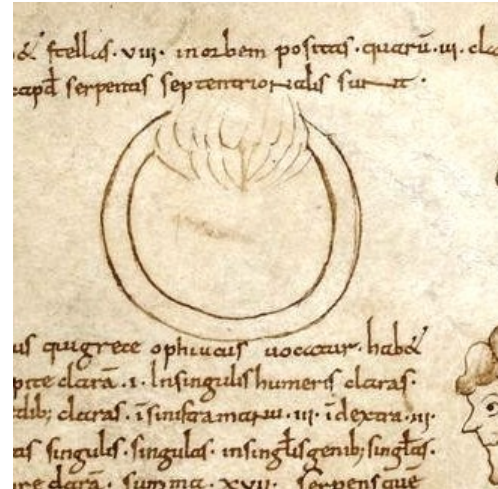 & stellas · viii · inorbem positas · quarū · iii · cla
capđ serpentis septentrionalis sunt ·
us quigrece ophiucus uocatur · hab&
pite clarā · i · Insingulis humeris claras ·
dib; claras · īsinistramanu · iii · īdextra · iii ·
as singulis · singulas · insinglis genib; singlas ·
re clarā · summa · xvii · Serpensquē